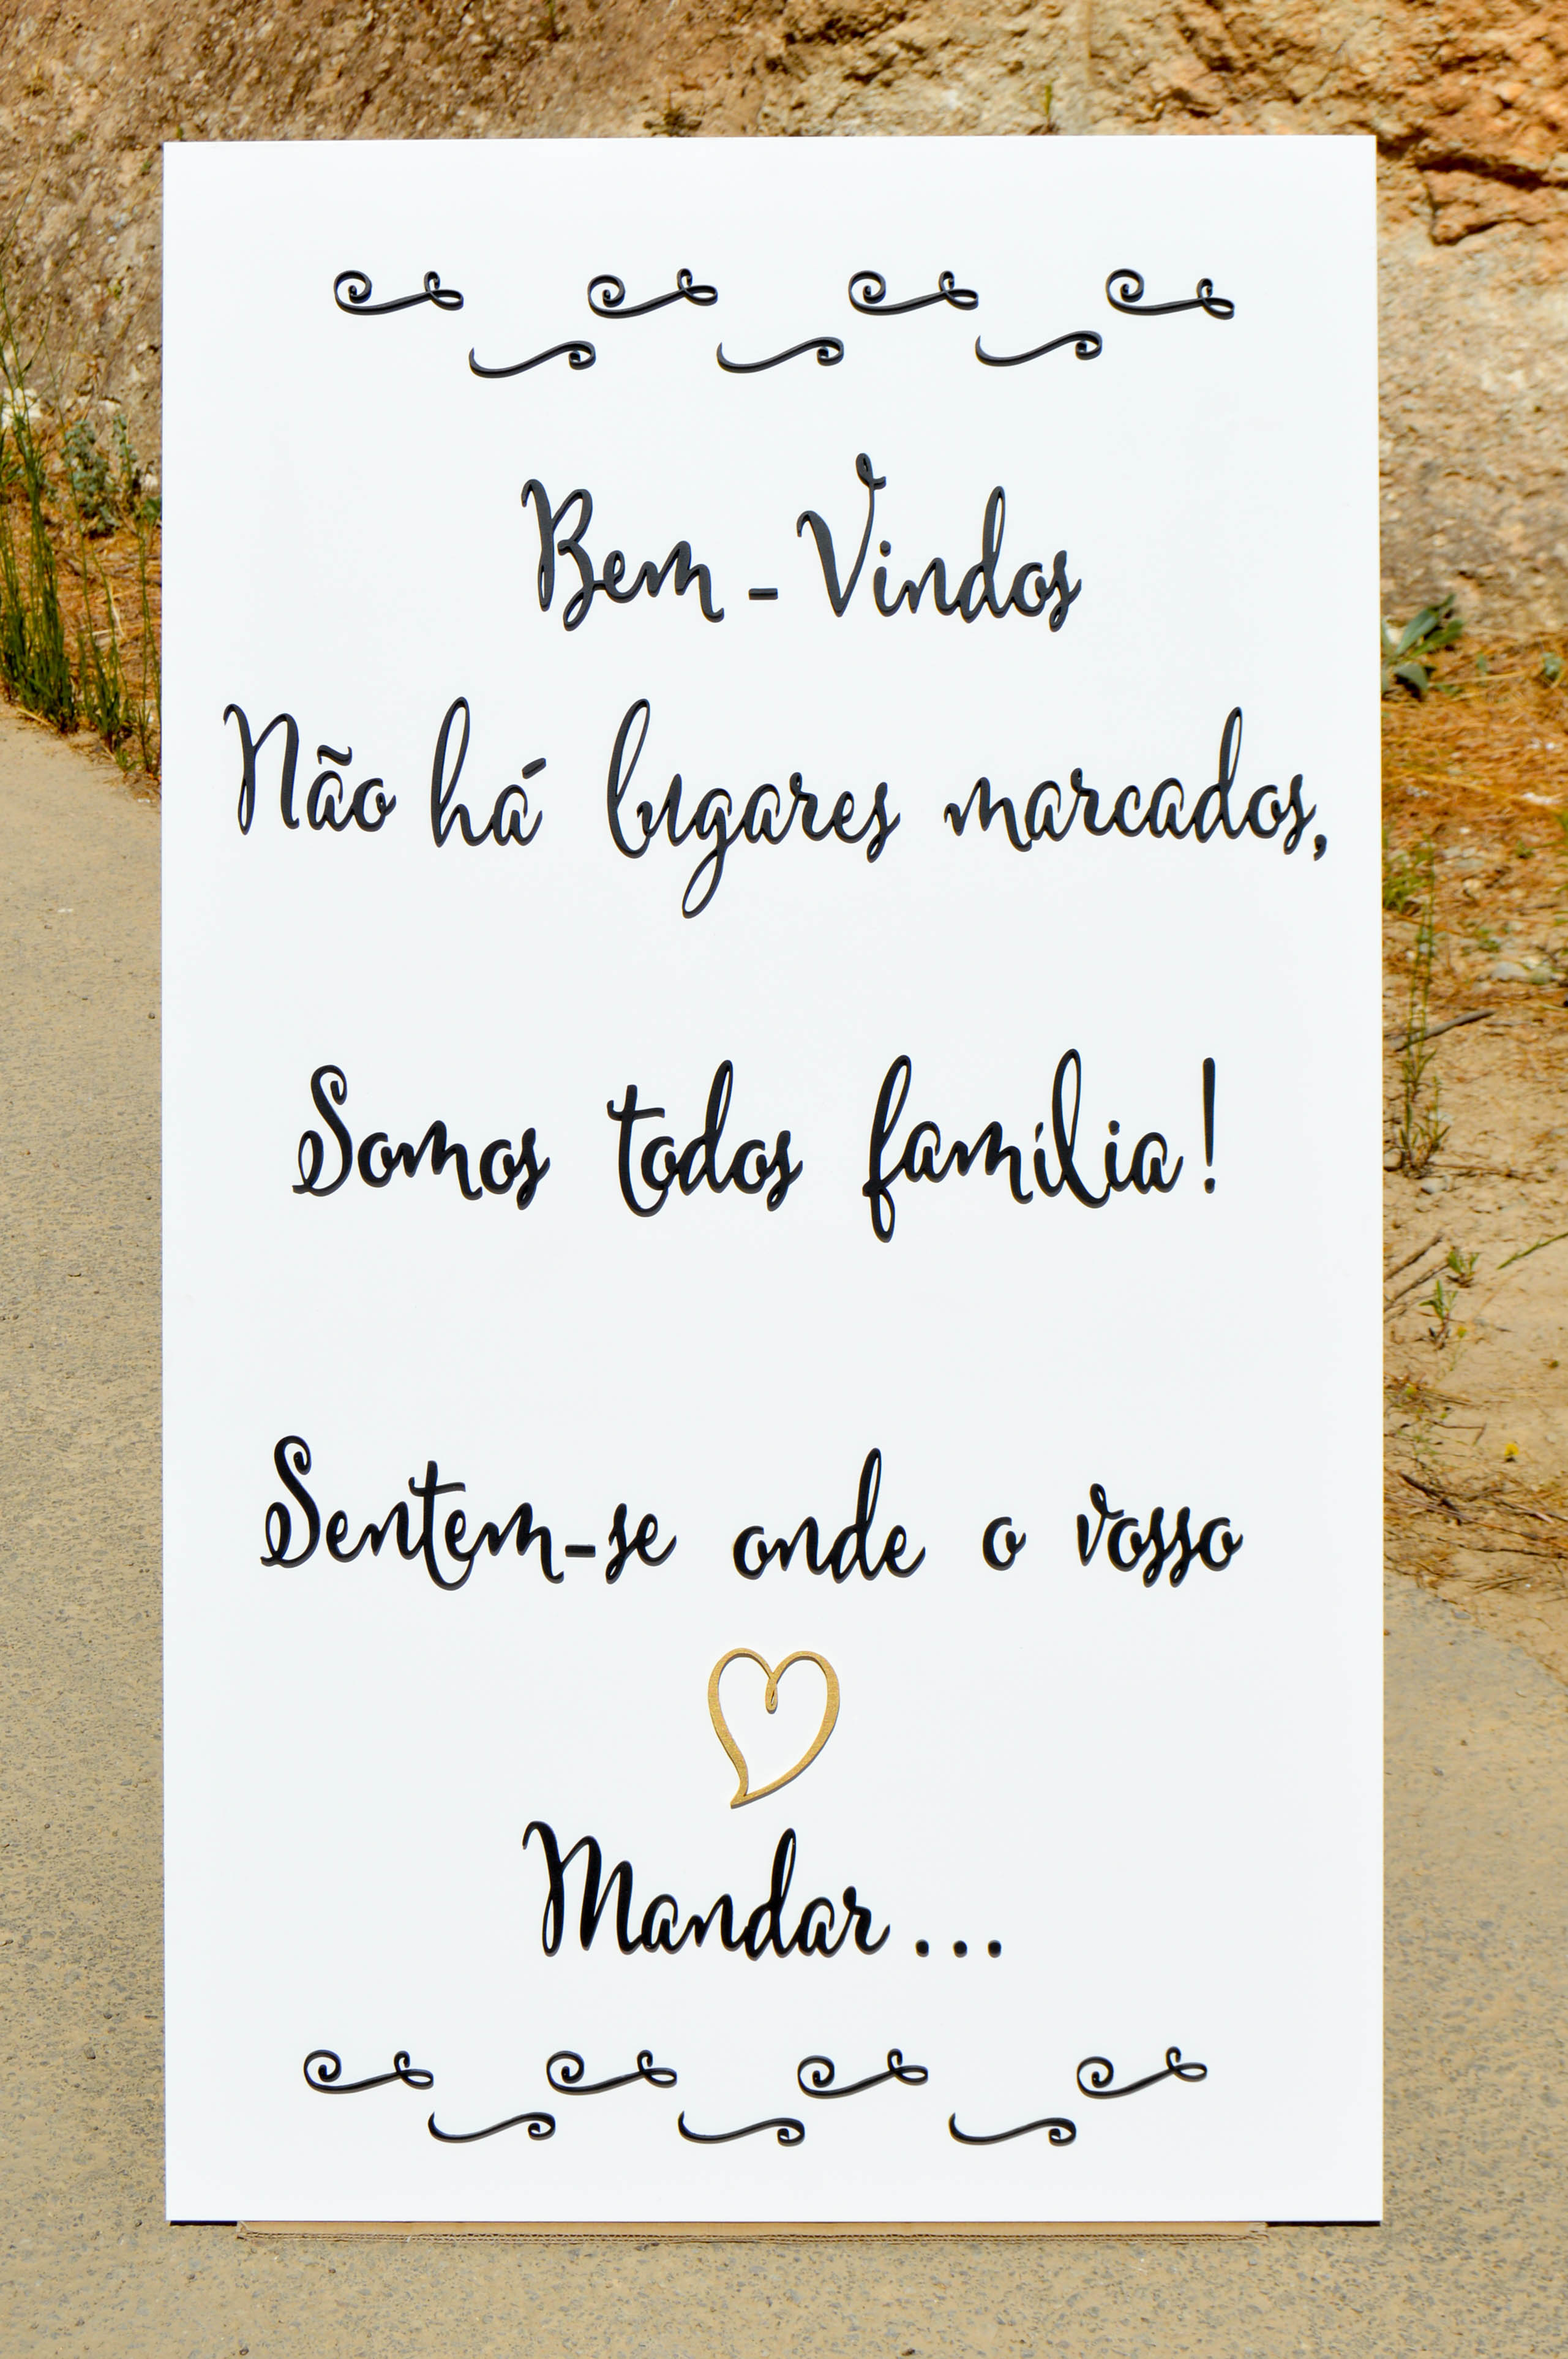 Bem-Vindos
Não há lugares marcados,
Somos todos família!
Sentem-se onde o vosso
Mandar...